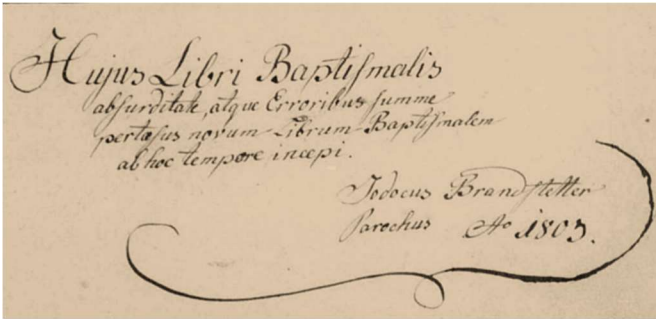 Hujus Libri Baptiſmalis
abſurditate, atque Erroribus ſumme
pertæſus novum Librum Baptiſmalem
ab hoc tempore incepi.
Jodocus Brandſtetter
Parochus Aº 1803.